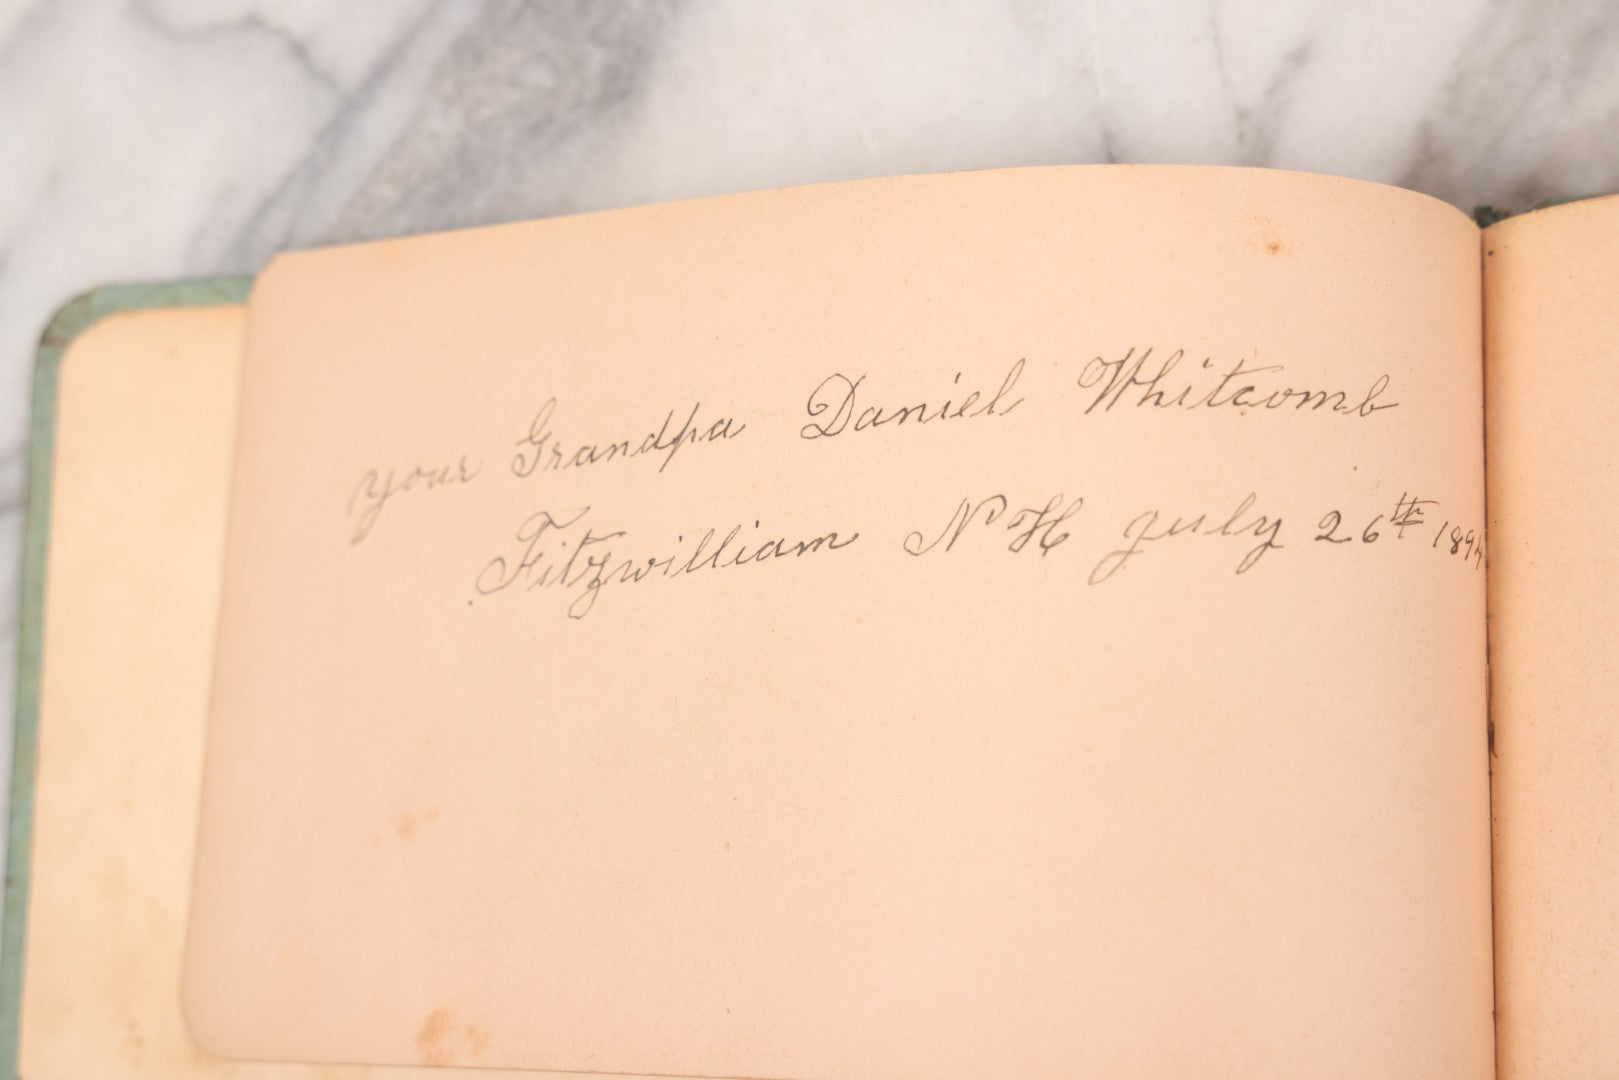 your Grandpa Daniel Whitcomb
Fitzwilliam N H july 26th 1894